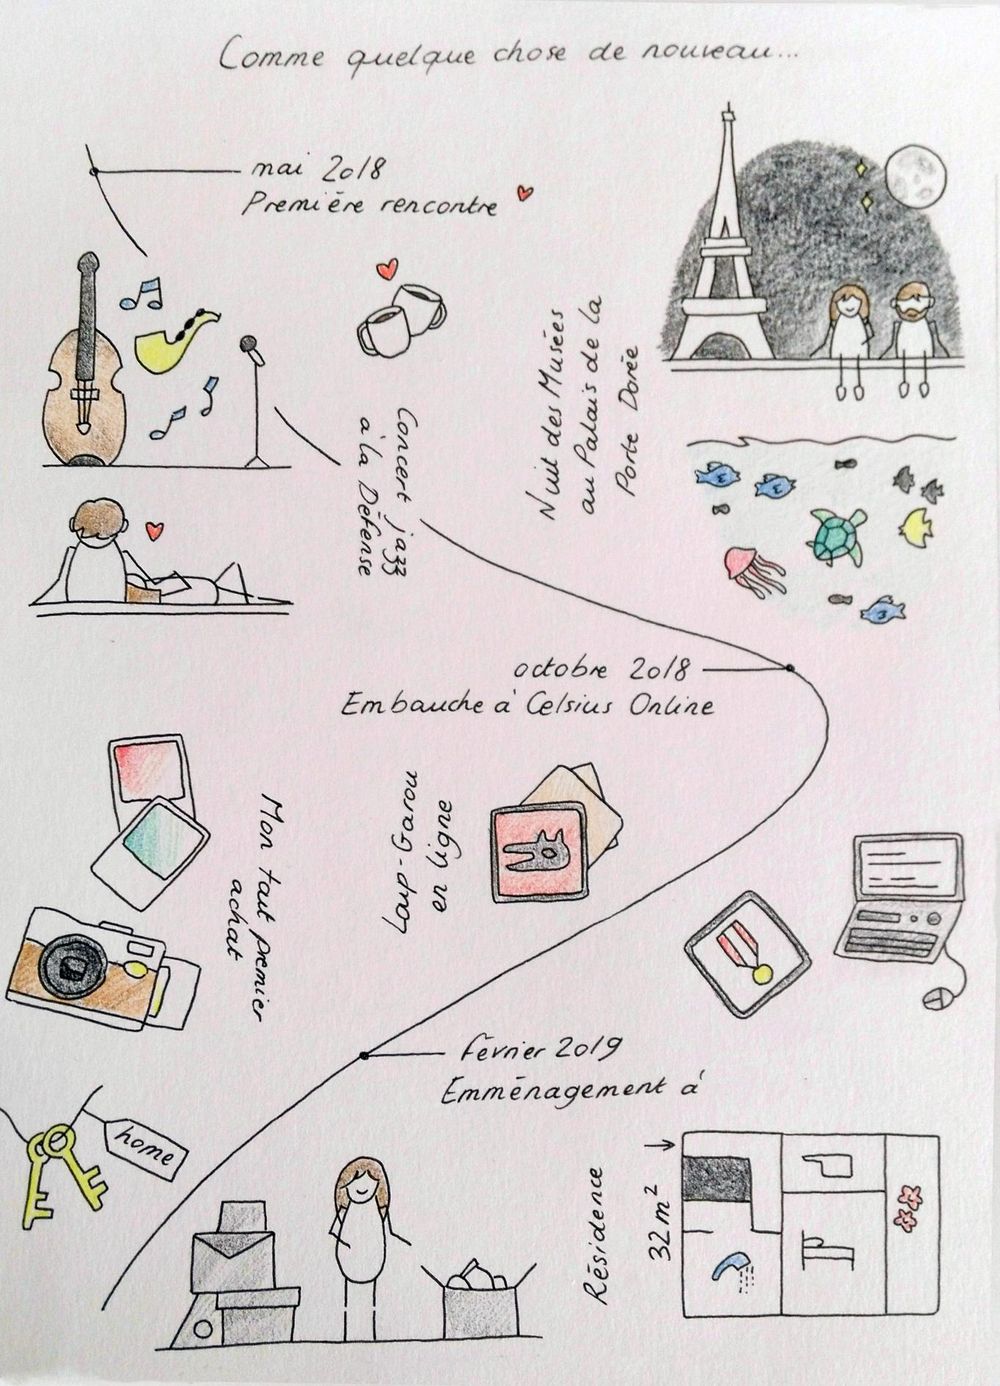 Comme quelque chose de nouveau...
mai 2018
Première rencontre
Concert jazz
à la Défense
Nuit des Musées
au Palais de la
Porte Dorée
octobre 2018
Embauche à Celsius Online
Mon tout premier
achat
Loup-Garou
en ligne
février 2019
Emménagement à
home
Résidence
32 m²